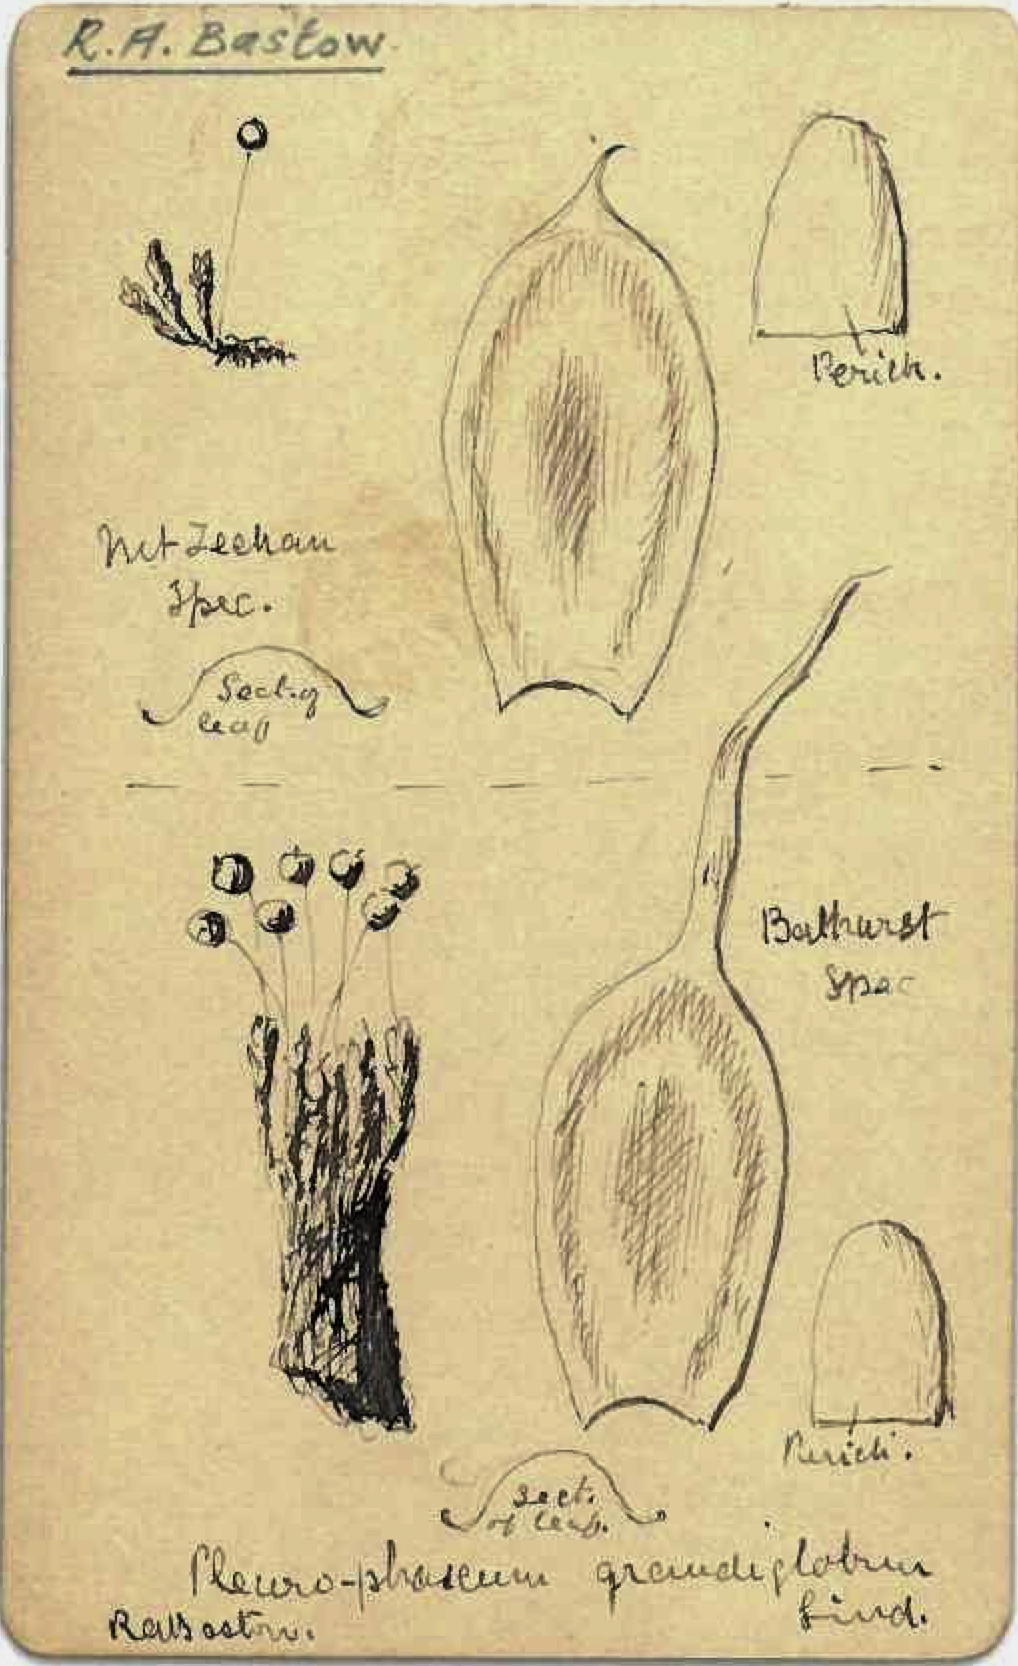 R.A. Bastow
Perich.
Mt Zeehan
Spec.
Sect. of
leaf
Bathurst
Spec
Perich.
Sect.
of leaf.
Pleuro-phascum grandiglobum
Lind.
RABastow.